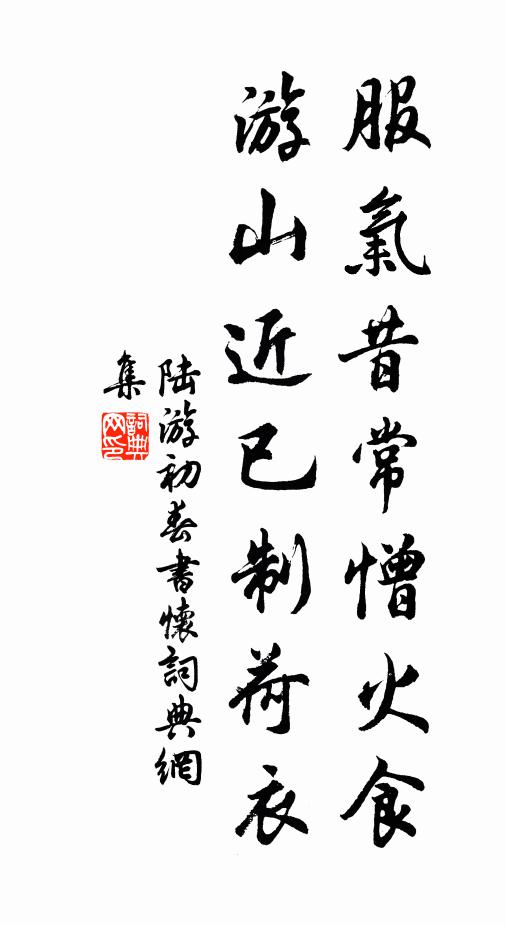 服氣昔常憎火食
游山近已制荷衣
陆游初春書懷詞典網
集
詞典网印